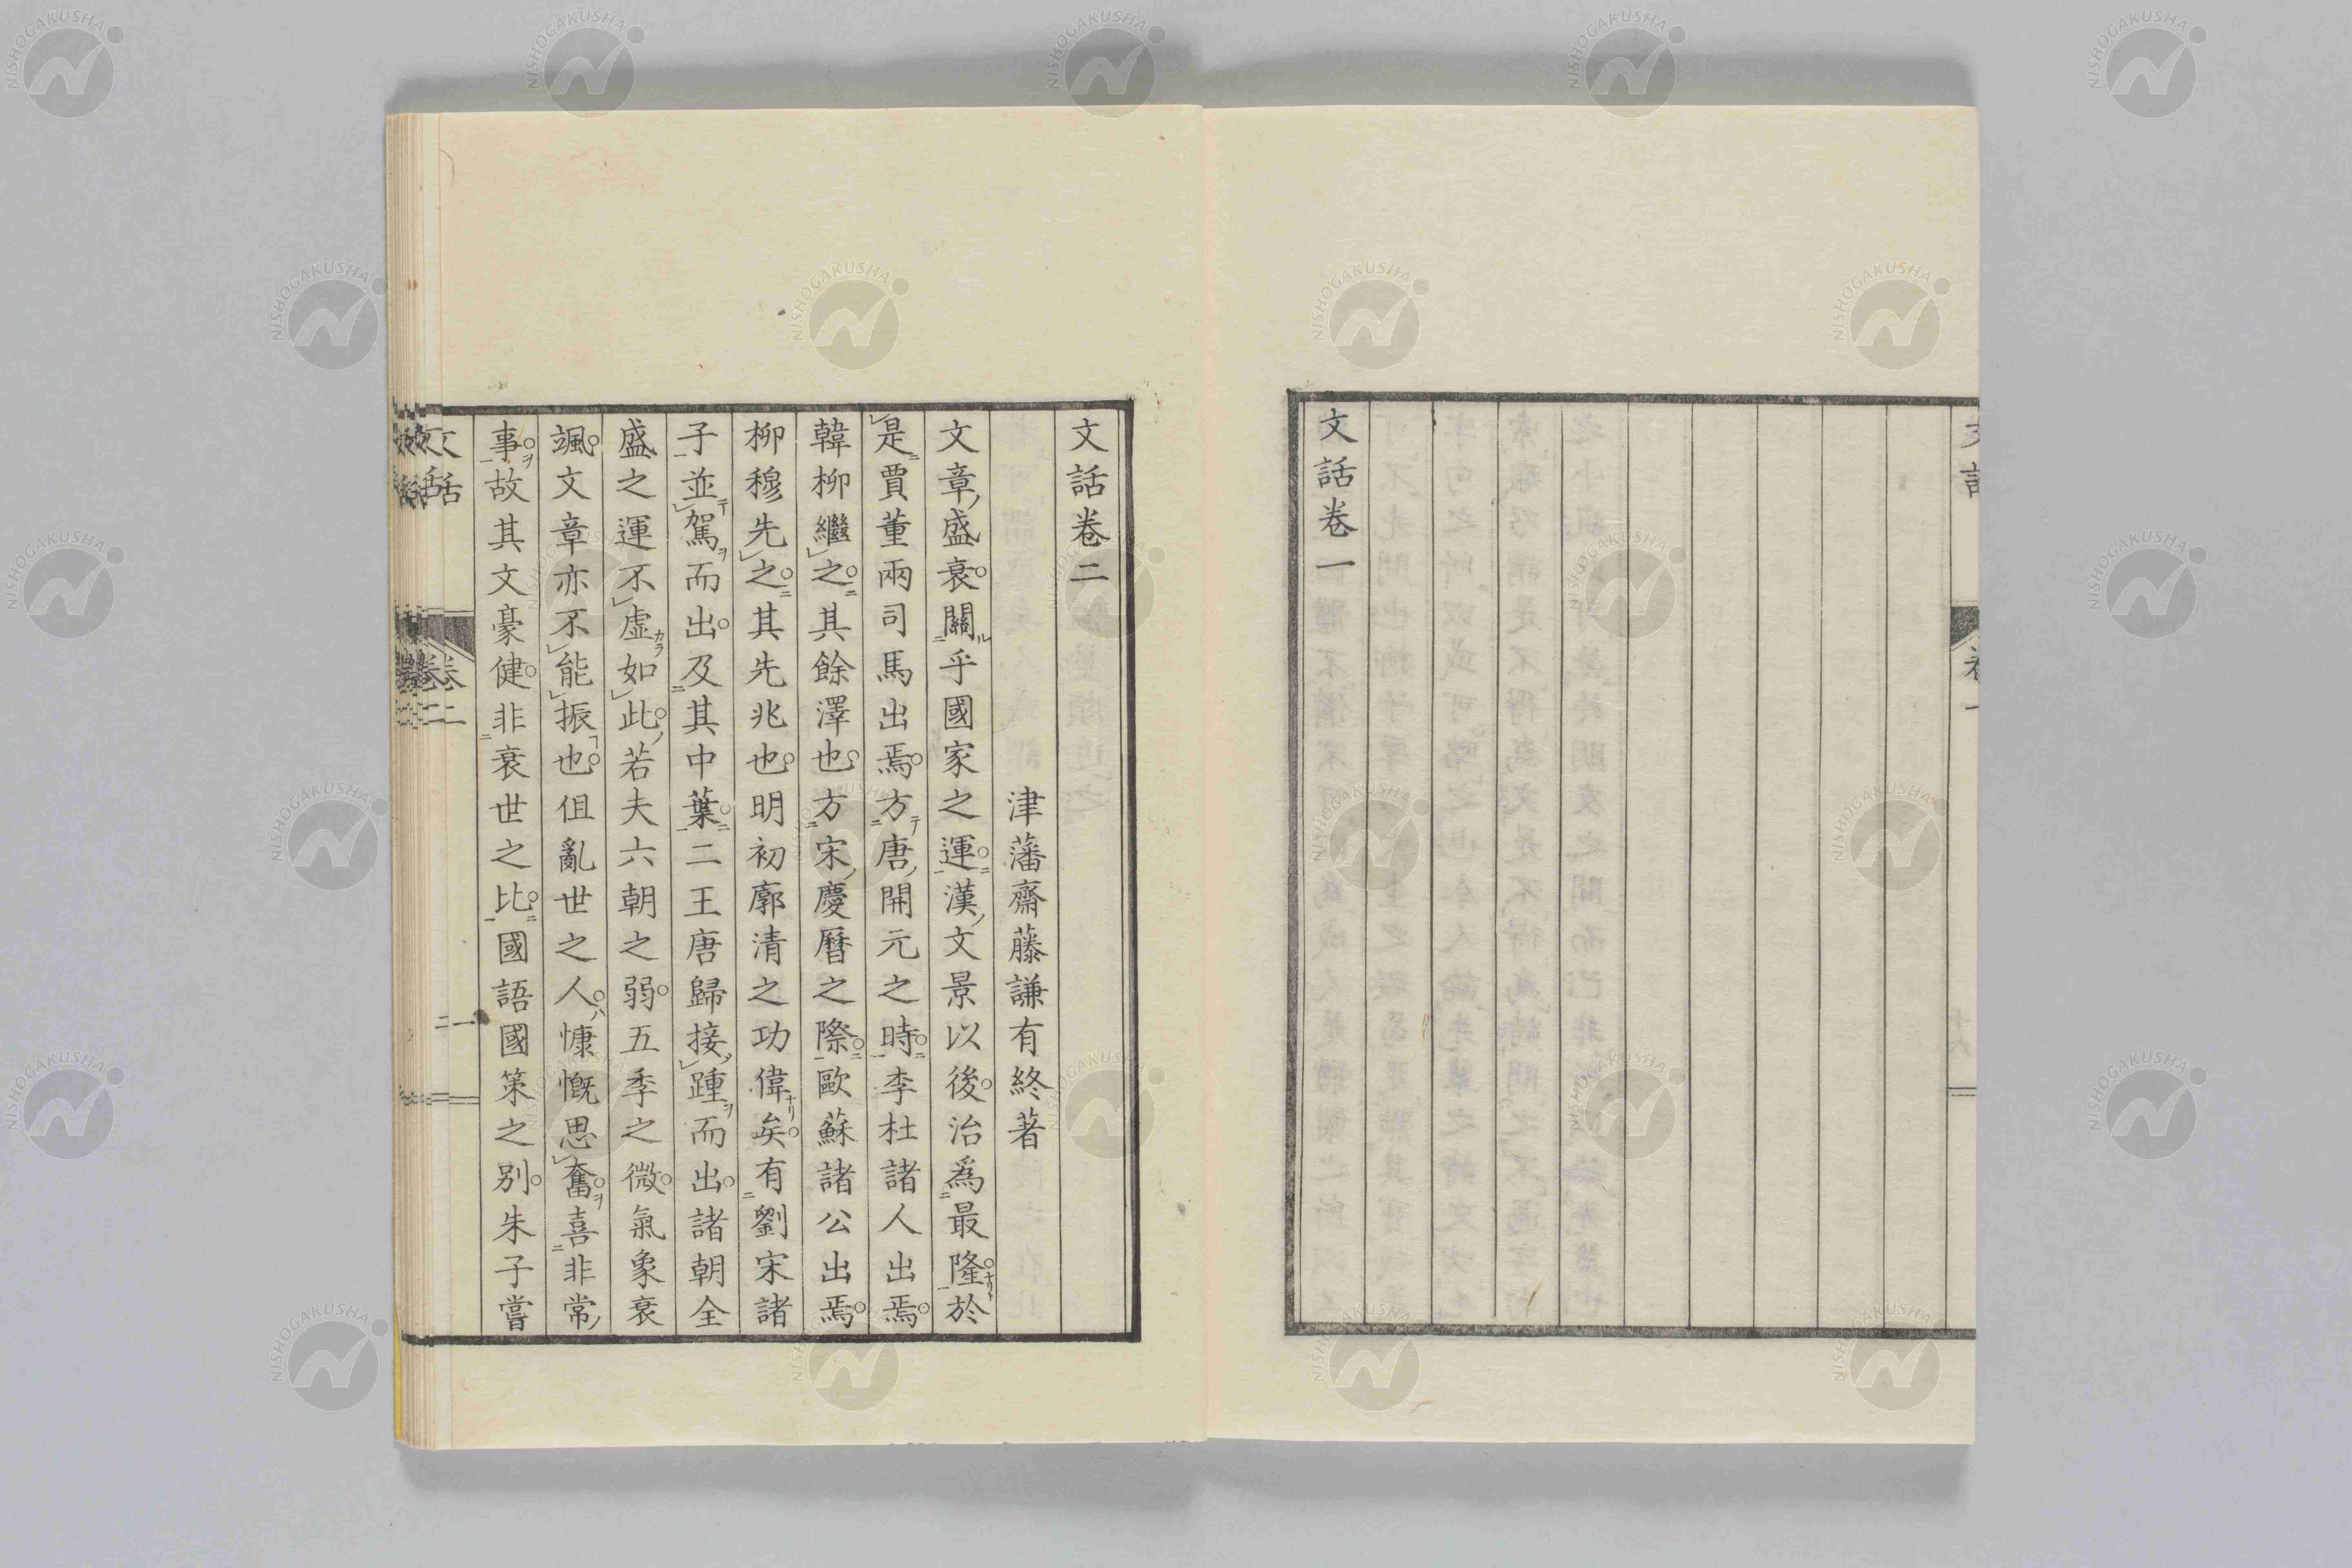 文話卷一
文話卷二
津藩齋藤謙有終著
文章盛衰關乎國家之運漢文景以後治爲最隆於
是賈董兩司馬出焉方唐開元之時李杜諸人出焉
韓柳繼之其餘澤也方宋慶曆之際歐蘇諸公出焉
柳穆先之其先兆也明初廓清之功偉矣有劉宋諸
子並駕而出及其中葉二王唐歸接踵而出諸朝全
盛之運不虛如此若夫六朝之弱五季之微氣象衰
颯文章亦不能振也但亂世之人慷慨思奮喜非常
事故其文豪健非衰世之比國語國策之別朱子嘗
文話
卷二
一
NISHOGAKUSHA